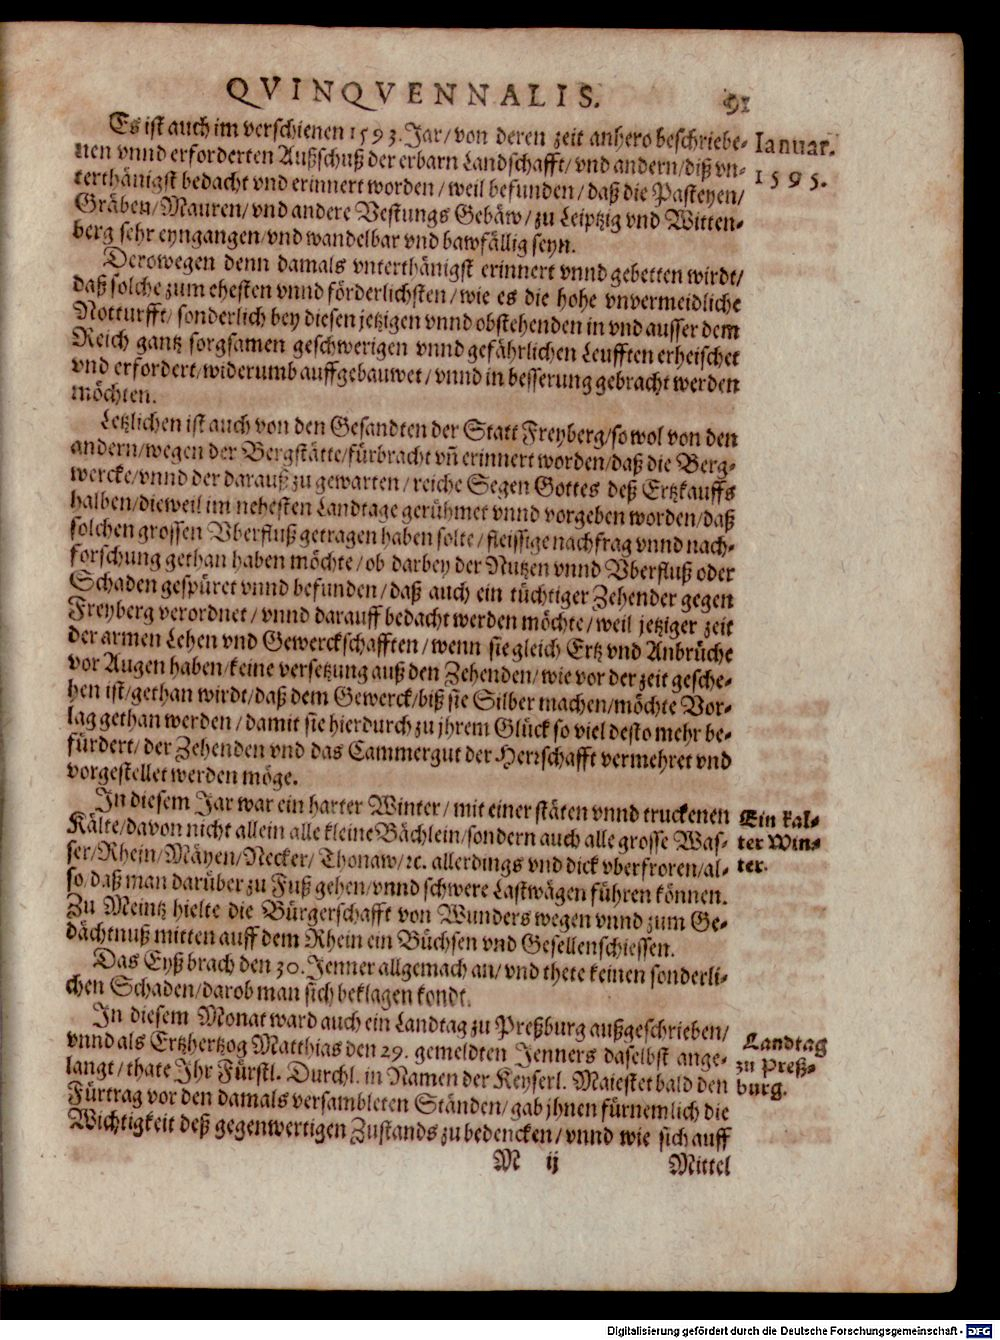 QVINQVENNALIS. 91
Es ist auch im verschienen 1593. Jar/ von deren zeit anhero beschriebe-
nen vnnd erforderten Außschuß der erbarn Landschafft/ vnd andern/ diß vn-
terthänigst bedacht vnd erinnert worden/ weil befunden/ daß die Pasteyen/
Gräben/ Mauren/ vnd andere Vestungs Gebäw/ zu Leiptzig vnd Witten-
berg sehr eyngangen/ vnd wandelbar vnd bawfällig seyn.
Ianuar.
1595.
Derowegen denn damals vnterthänigst erinnert vnnd gebetten wirdt/
daß solche zum ehesten vnnd förderlichsten/ wie es die hohe vnvermeidliche
Notturfft/ sonderlich bey diesen jetzigen vnnd obstehenden in vnd ausser dem
Reich gantz sorgsamen geschwerigen vnnd gefährlichen Leufften erheischet
vnd erfordert/ widerumb auffgebauwet/ vnnd in besserung gebracht werden
möchten.
Letzlichen ist auch von den Gesandten der Statt Freyberg/ so wol von den
andern/ wegen der Bergstätte/ fürbracht vñ erinnert worden/ daß die Berg-
wercke/ vnnd der darauß zu gewarten/ reiche Segen Gottes deß Ertzkauffs
halben/ dieweil im nehesten Landtage gerühmet vnnd vorgeben worden/ daß
solchen grossen Vberfluß getragen haben solte/ fleissige nachfrag vnnd nach-
forschung gethan haben möchte/ ob darbey der Nutzen vnnd Vberfluß oder
Schaden gespüret vnnd befunden/ daß auch ein tüchtiger Zehender gegen
Freyberg verordnet/ vnnd darauff bedacht werden möchte/ weil jetziger zeit
der armen Lehen vnd Gewerckschafften/ wenn sie gleich Ertz vnd Anbrüche
vor Augen haben/ keine versetzung auß den Zehenden/ wie vor der zeit gesche-
hen ist/ gethan wirdt/ daß dem Gewerck/ biß sie Silber machen/ möchte Vor-
lag gethan werden/ damit sie hierdurch zu jhrem Glück so viel desto mehr be-
fürdert/ der Zehenden vnd das Cammergut der Herrschafft vermehret vnd
vorgestellet werden möge.
In diesem Jar war ein harter Winter/ mit einer stäten vnnd truckenen
Kälte/ davon nicht allein alle kleine Bächlein/ sondern auch alle grosse Was-
ser/ Rhein/ Mäyen/ Necker/ Thonaw/ ꝛc. allerdings vnd dick vberfroren/ al-
so/ daß man darüber zu Fuß gehen/ vnnd schwere Lastwägen führen können.
Zu Meintz hielte die Bürgerschafft von Wunders wegen vnnd zum Ge-
dächtnuß mitten auff dem Rhein ein Büchsen vnd Gesellenschiessen.
Ein kal-
ter Win-
ter.
Das Eyß brach den 30. Jenner allgemach an/ vnd thete keinen sonderli-
chen Schaden/ darob man sich beklagen kondt.
In diesem Monat ward auch ein Landtag zu Preßburg außgeschrieben/
vnnd als Ertzhertzog Matthias den 29. gemeldten Jenners daselbst ange-
langt/ thate Ihr Fürstl. Durchl. in Namen der Keyserl. Maiestet bald den
Fürtrag vor den damals versambleten Ständen/ gab jhnen fürnemlich die
Wichtigkeit deß gegenwertigen Zustands zu bedencken/ vnnd wie sich auff
Landtag
zu Preß-
burg.
M ij Mittel
Digitalisierung gefördert durch die Deutsche Forschungsgemeinschaft - DFG